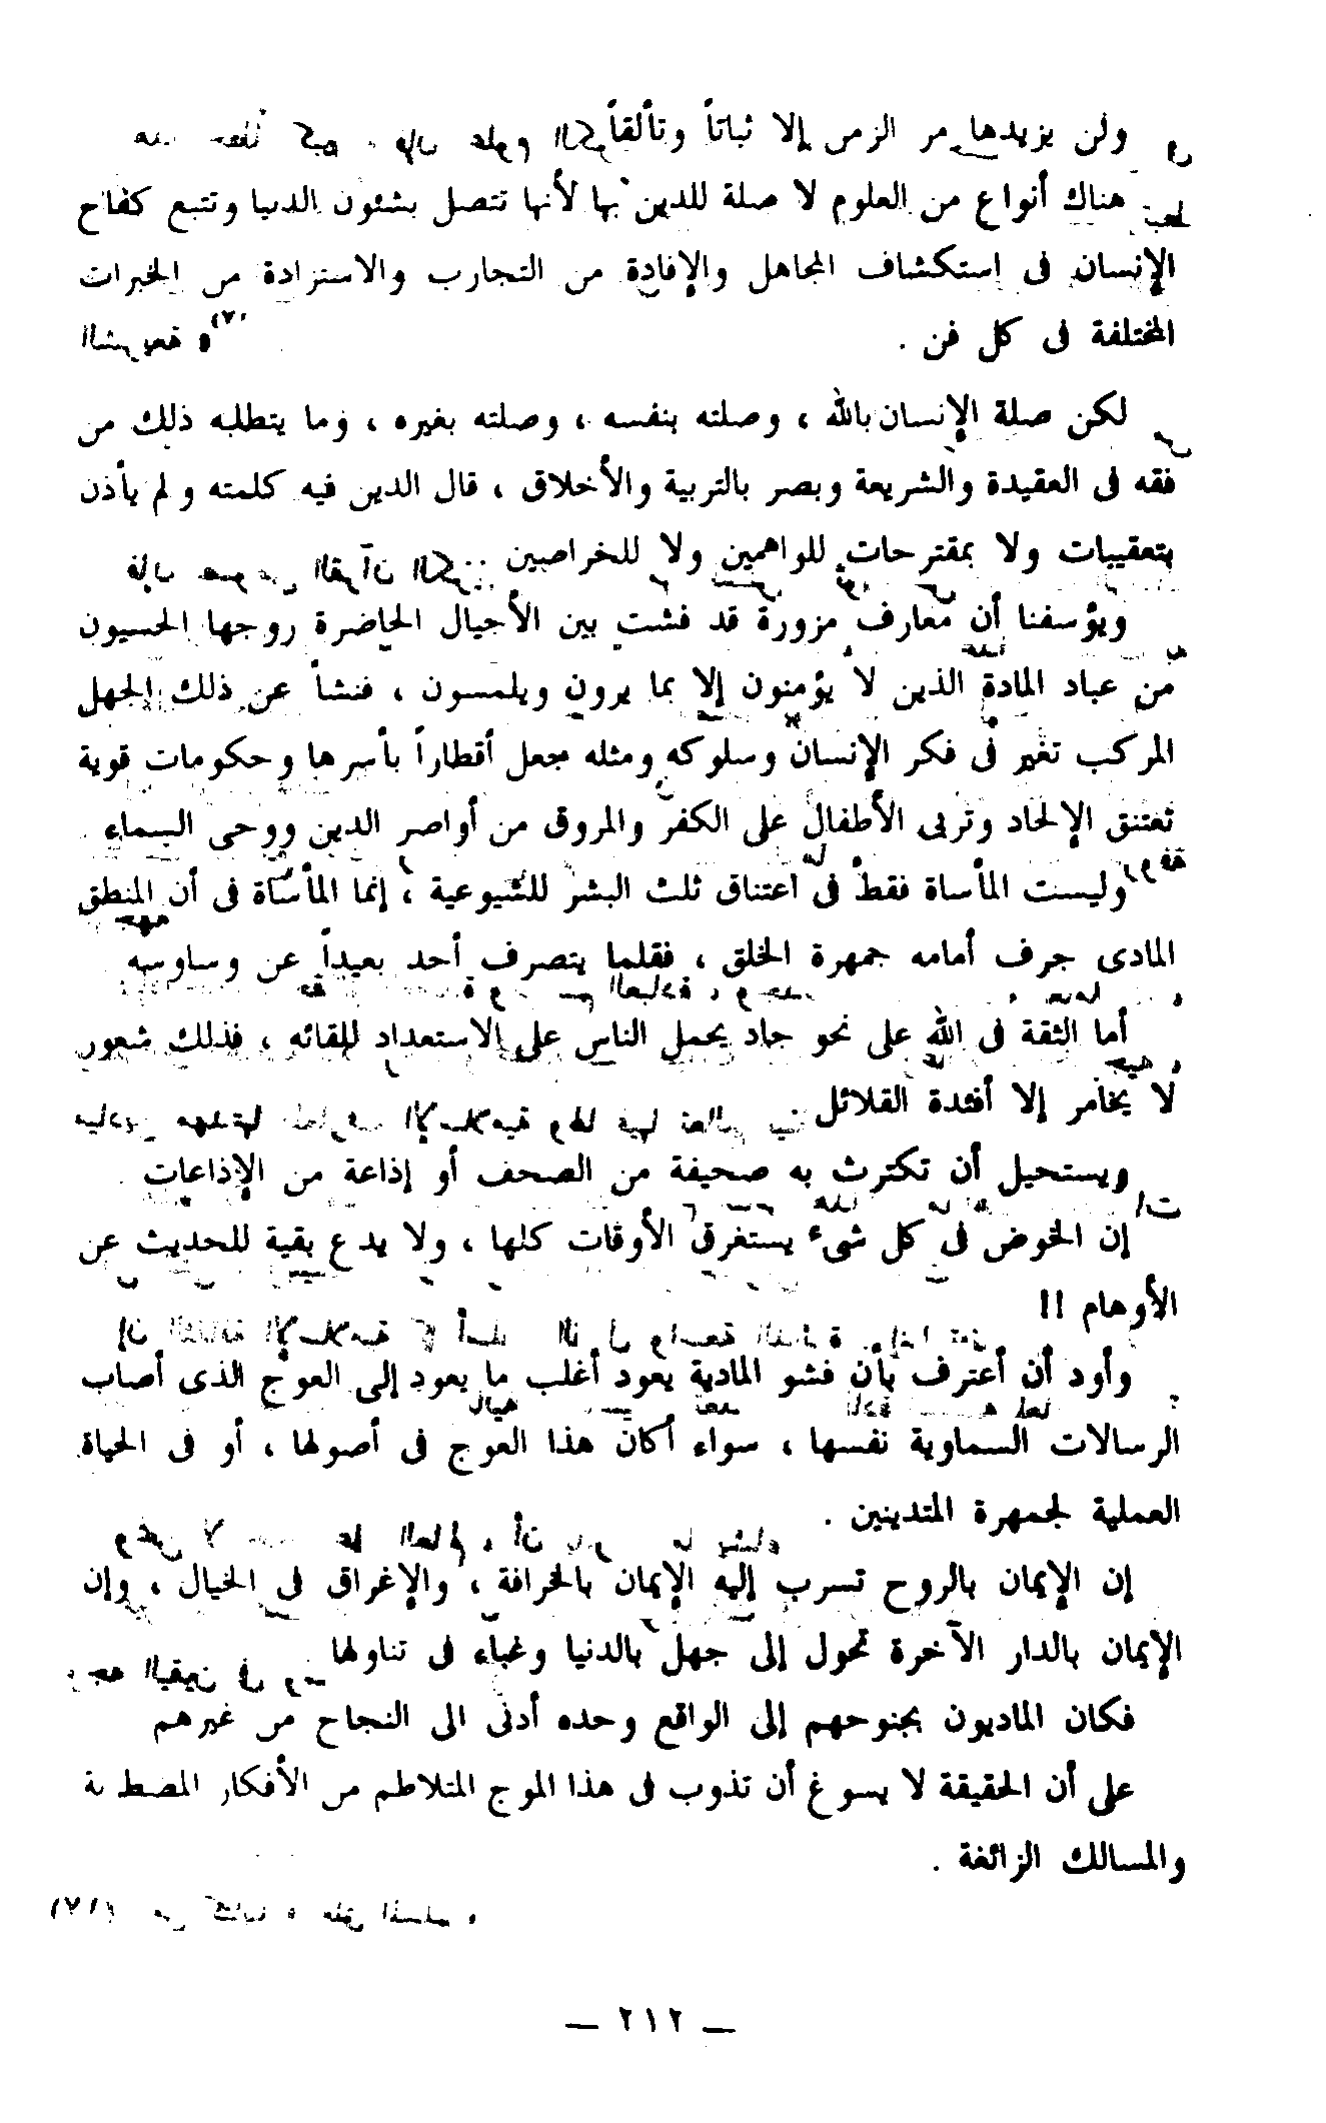 ولن يزيدها مر الزمن إلا ثباتاً وتألقاً
هناك أنواع من العلوم لا صلة للدين بها لأنها تتصل بشئون الدنيا وتتبع كفاح
الإنسان فى استكشاف المجاهل والإفادة من التجارب والاستزادة من الخبرات
المختلفة فى كل فن .
لكن صلة الإنسان بالله ، وصلته بنفسه ، وصلته بغيره ، وما يتطلبه ذلك من
فقه فى العقيدة والشريعة وبصر بالتربية والأخلاق ، قال الدين فيه كلمته ولم يأذن
بتعقيبات ولا بمقترحات للواهمين ولا للخراصين
ويؤسفنا أن معارف مزورة قد فشت بين الأجيال الحاضرة روجها الحسيون
من عباد المادة الذين لا يؤمنون إلا بما يرون ويلمسون ، فنشأ عن ذلك الجهل
المركب تغير فى فكر الإنسان وسلوكه ومثله جعل أقطاراً بأسرها وحكومات قوية
تعتنق الإلحاد وتربى الأطفال على الكفر والمروق من أواصر الدين ووحى السماء .
وليست المأساة فقط فى اعتناق ثلث البشر للشيوعية ، إنما المأساة فى أن المنطق
المادى جرف أمامه جمهرة الخلق ، فقلما يتصرف أحد بعيداً عن وساوسه
أما الثقة فى الله على نحو جاد يحمل الناس على الاستعداد للقائه ، فذلك شعور
لا يخامر إلا أفئدة القلائل
ويستحيل أن تكترث به صحيفة من الصحف أو إذاعة من الإذاعات
إن الخوض فى كل شىء يستغرق الأوقات كلها ، ولا يدع بقية للحديث عن
الأوهام !!
وأود أن أعترف بأن فشو المادية يعود أغلب ما يعود إلى العوج الذى أصاب
الرسالات السماوية نفسها ، سواء أكان هذا العوج فى أصولها ، أو فى الحياة
العملية لجمهرة المتدينين .
إن الإيمان بالروح تسرب إليه الإيمان بالخرافة ، والإغراق فى الخيال ، وإن
الإيمان بالدار الآخرة تحول إلى جهل بالدنيا وغباء فى تناولها
فكان الماديون بجنوحهم إلى الواقع وحده أدنى الى النجاح من غيرهم
على أن الحقيقة لا يسوغ أن تذوب فى هذا الموج المتلاطم من الأفكار
والمسالك الزائغة .
— ٢١٢ —